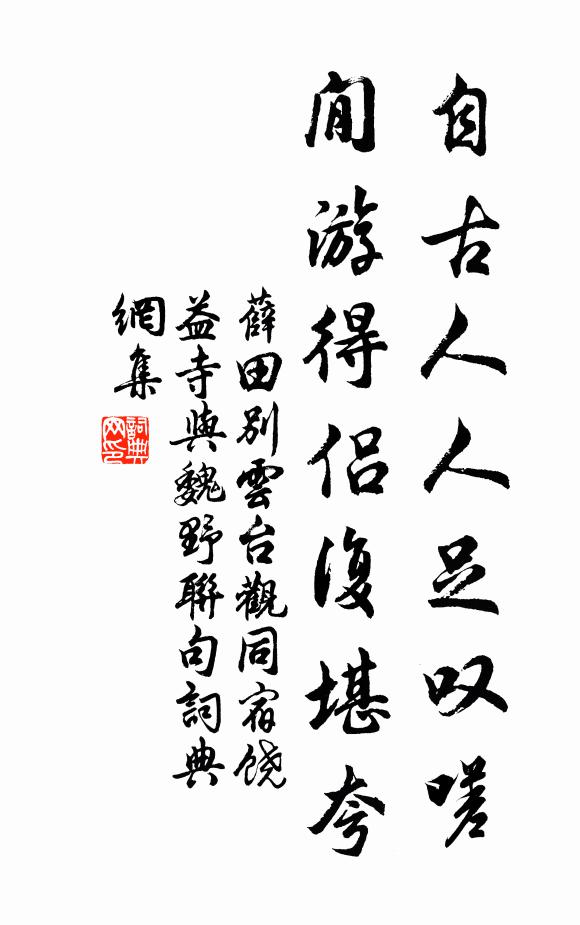 自古人人足叹嗟
閒游得侣復堪夸
薛田别雲台觀同宿饶
益寺與魏野聯句詞典
網集
詞典网印